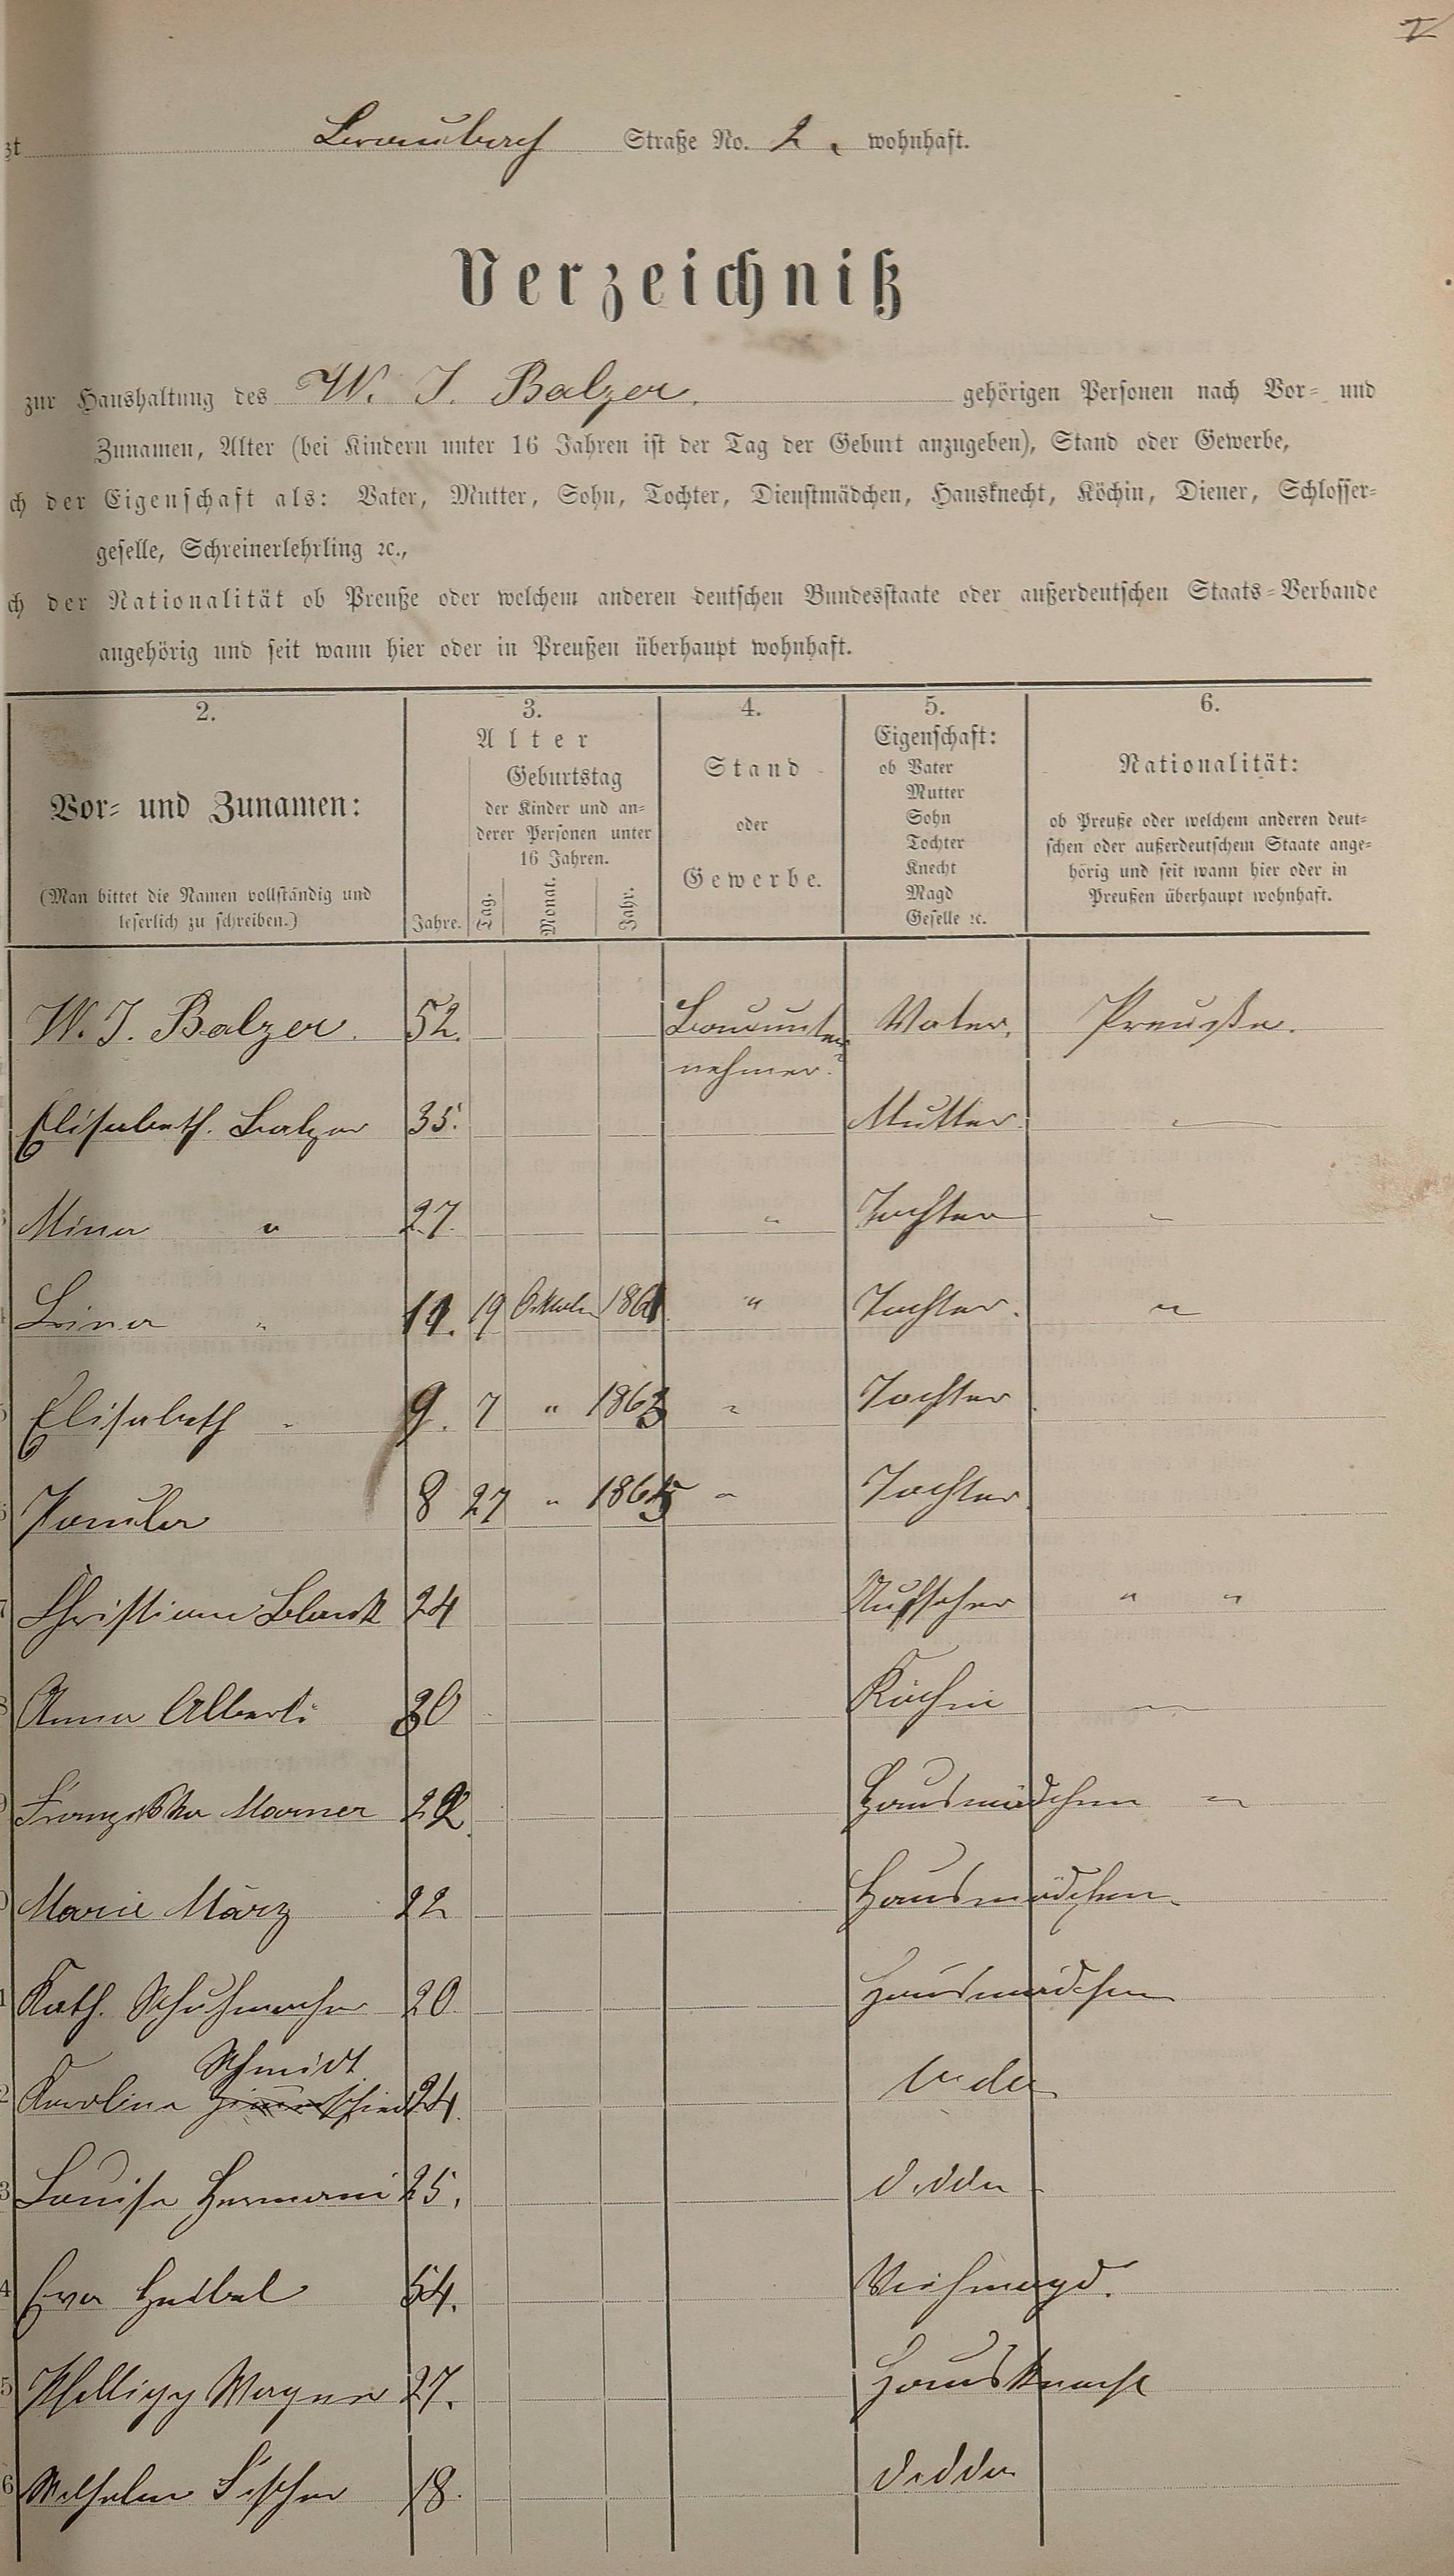 zt Braubach Straße No. 2. wohnhaft.
Verzeichniß
zur Haushaltung des W. J. Balzer. gehörigen Personen nach Vor- und
Zunamen, Alter (bei Kindern unter 16 Jahren ist der Tag der Geburt anzugeben), Stand oder Gewerbe,
ch der Eigenschaft als: Vater, Mutter, Sohn, Tochter, Dienstmädchen, Hausknecht, Köchin, Diener, Schlosser-
geselle, Schreinerlehrling ꝛc.,
ch der Nationalität ob Preuße oder welchem anderen deutschen Bundesstaate oder außerdeutschen Staats-Verbande
angehörig und seit wann hier oder in Preußen überhaupt wohnhaft.
2.
Vor- und Zunamen:
(Man bittet die Namen vollständig und
leserlich zu schreiben.)
3.
Alter
Geburtstag
der Kinder und an-
derer Personen unter
16 Jahren.
Jahre. Tag. Monat. Jahr.
4.
Stand
oder
Gewerbe.
5.
Eigenschaft:
ob Vater
Mutter
Sohn
Tochter
Knecht
Magd
Geselle ꝛc.
6.
Nationalität:
ob Preuße oder welchem anderen deut-
schen oder außerdeutschem Staate ange-
hörig und seit wann hier oder in
Preußen überhaupt wohnhaft.
W. J. Balzer. 52. Bauunter Vater. Preuße.
nehmer.
Elisabeth. Balzer 35. Mutter.
3 Mina " 27. " Tochter "
4 Lina " 11. 19 Oktober 1861 " Tochter. "
5 Elisabeth " 9. 7 " 1863 " Tochter
6 Paula 8 27 " 1865 " Tochter
7 Christian Blank 24 Aufseher " "
8 Anna Alberti 30 Köchin "
9 Franziska Marner 22 Hausmädchen "
Marie März 22 Hausmädchen
1 Kath. Schuhmacher 20 Hausmädchen
Schmidt
2 Karolina 24.
3 Louise Hermani 25. ditto
4 Eva Heibel 54. Viehmagd.
5 Philipp Wagner 27. Hausknecht
6 Wilhelm Fischer 18. ditto